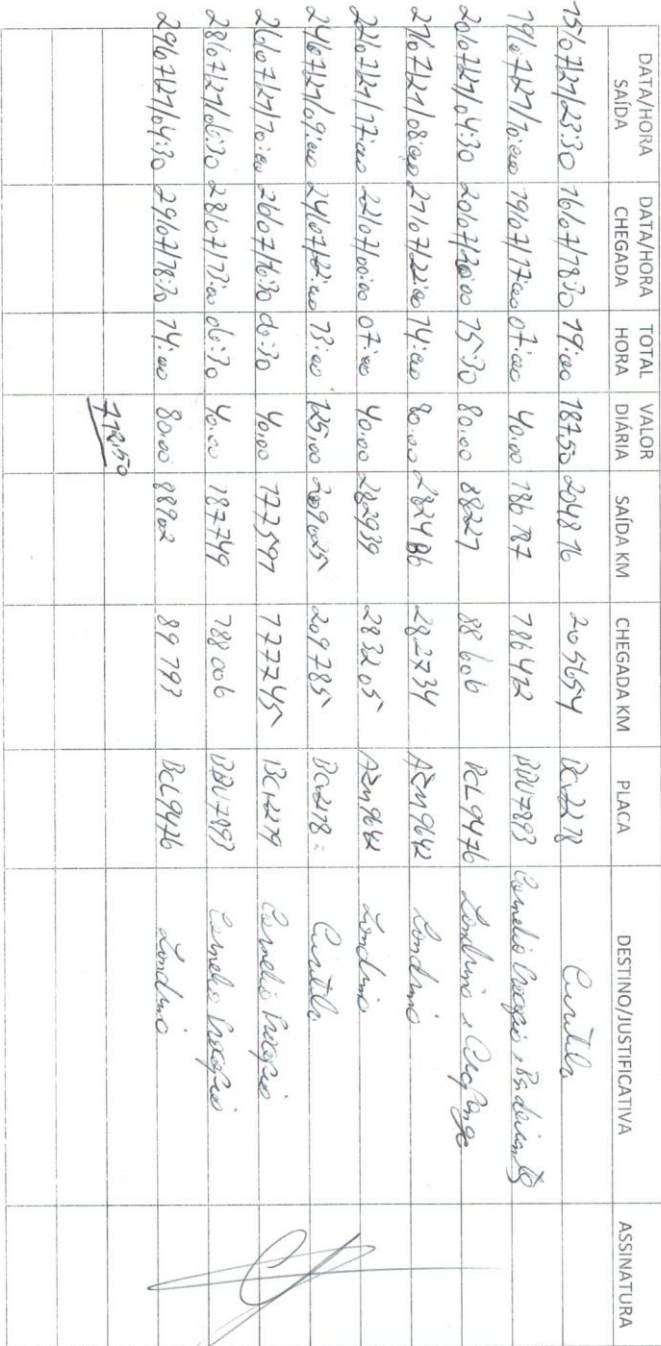 DATA/HORA SAÍDA DATA/HORA CHEGADA TOTAL HORA VALOR DIÁRIA SAÍDA KM CHEGADA KM PLACA DESTINO/JUSTIFICATIVA ASSINATURA
15/07/21/23:30 16/07/18:30 19:00 187,50 204816 205654 Curitiba
19/07/21/10:00 19/07/17:00 07:00 40,00 186187 186412 BBU7893 Cornelio Procopio e Bandeirantes
20/07/21/04:30 20/07/20:00 15:30 80,00 88227 88606 BCL9476 Londrina e
21/07/21/08:00 21/07/22:00 14:00 80,00 282486 282734 Londrina
22/07/21/17:00 22/07/00:00 07:00 40,00 282939 283205 Londrina
24/07/21/09:00 24/07/22:00 13:00 125,00 209025 209785 Curitiba
26/07/21/10:00 26/07/16:30 06:30 40,00 177591 177745 Cornelio Procopio
28/07/21/06:30 28/07/13:00 06:30 40,00 187749 188006 BBU7893 Cornelio Procopio
29/07/21/04:30 29/07/18:30 14:00 80,00 88902 89193 BCL9476 Londrina
712,50